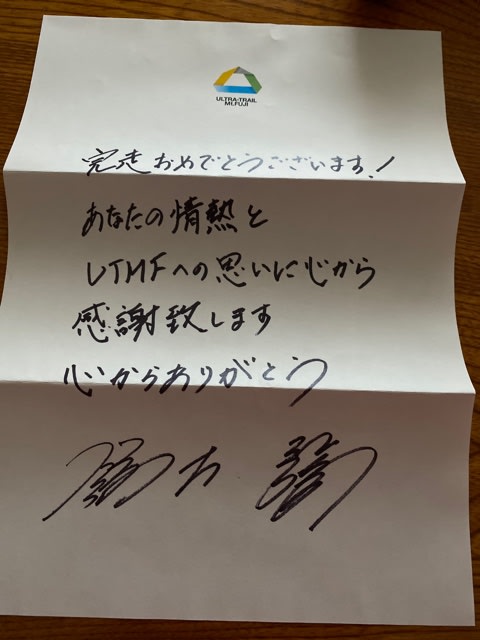 ULTRA-TRAIL
Mt.FUJI
完走おめでとうございます!
あなたの情熱と
UTMFへの思いに心から
感謝致します
心からありがとう